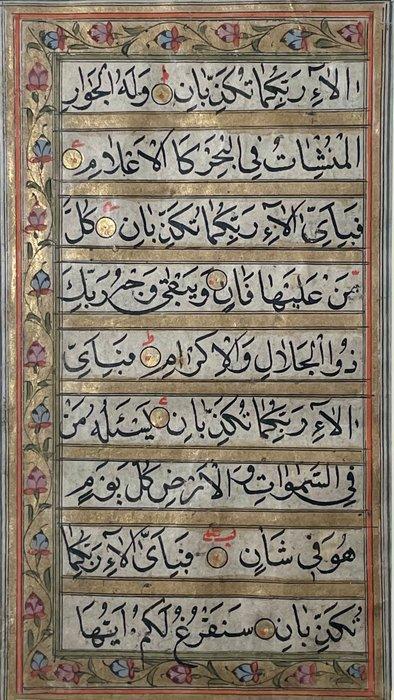 الآءِ رَبِّكُمَا تُكَذِّبَانِ وَلَهُ الْجَوَارِ
الْمُنْشَئَاتُ فِي الْبَحْرِ كَالْاَعْلَامِ
فَبِاَيِّ الآءِ رَبِّكُمَا تُكَذِّبَانِ كُلُّ
مَنْ عَلَيْهَا فَانٍ وَيَبْقٰى وَجْهُ رَبِّكَ
ذُو الْجَلَالِ وَالْاِكْرَامِ فَبِاَيِّ
الآءِ رَبِّكُمَا تُكَذِّبَانِ يَسْئَلُهُ مَنْ
فِي السَّمٰوَاتِ وَالْاَرْضِ كُلَّ يَوْمٍ
هُوَ فِي شَانٍ فَبِاَيِّ الآءِ رَبِّكُمَا
تُكَذِّبَانِ سَنَفْرُغُ لَكُمْ اَيُّهَا